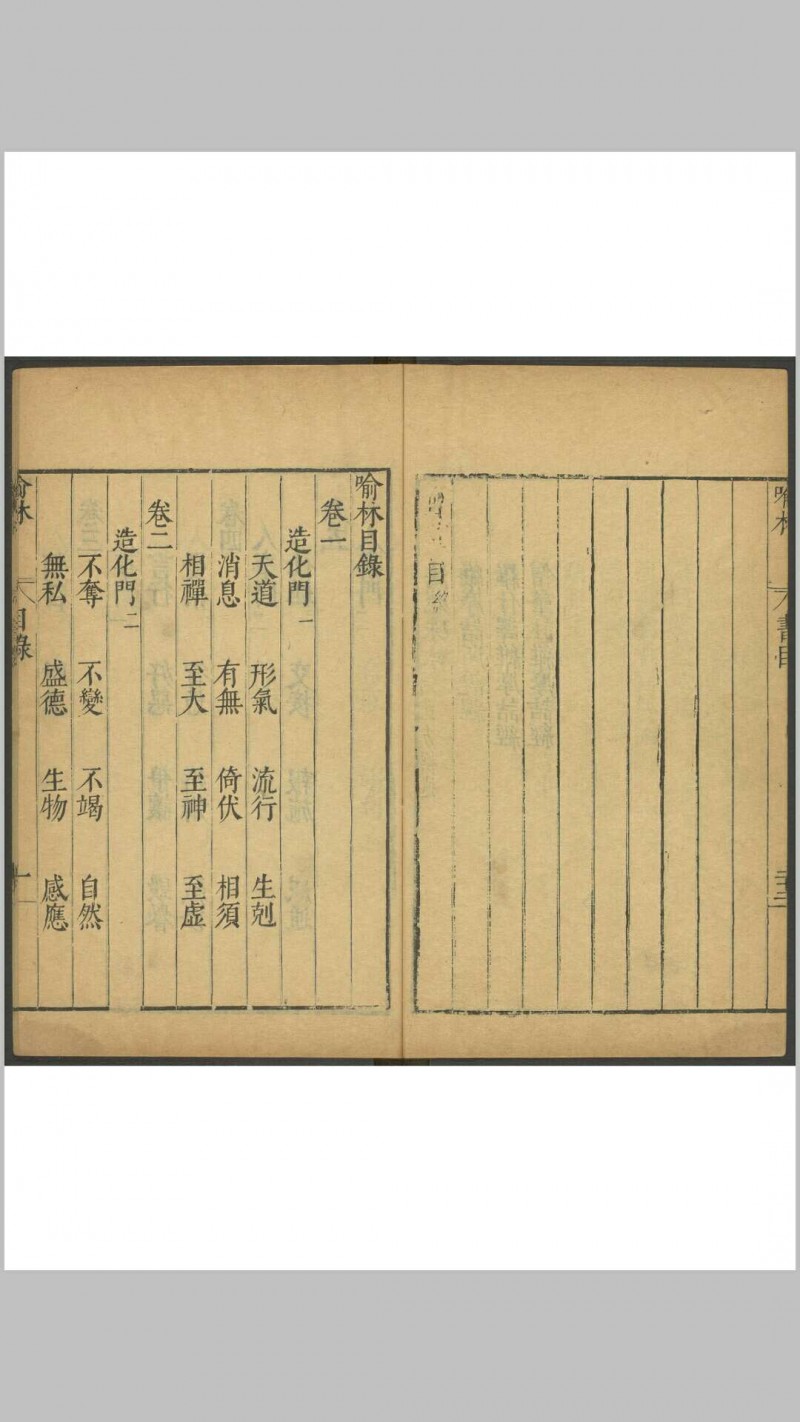 喻林
書目
喻林目錄
卷一
造化門一
天道 形氣 流行 生剋
消息 有無 倚伏 相須
相禪 至大 至神 至虛
卷二
造化門二
不奪 不變 不竭 自然
無私 盛德 生物 感應
喻林
目錄